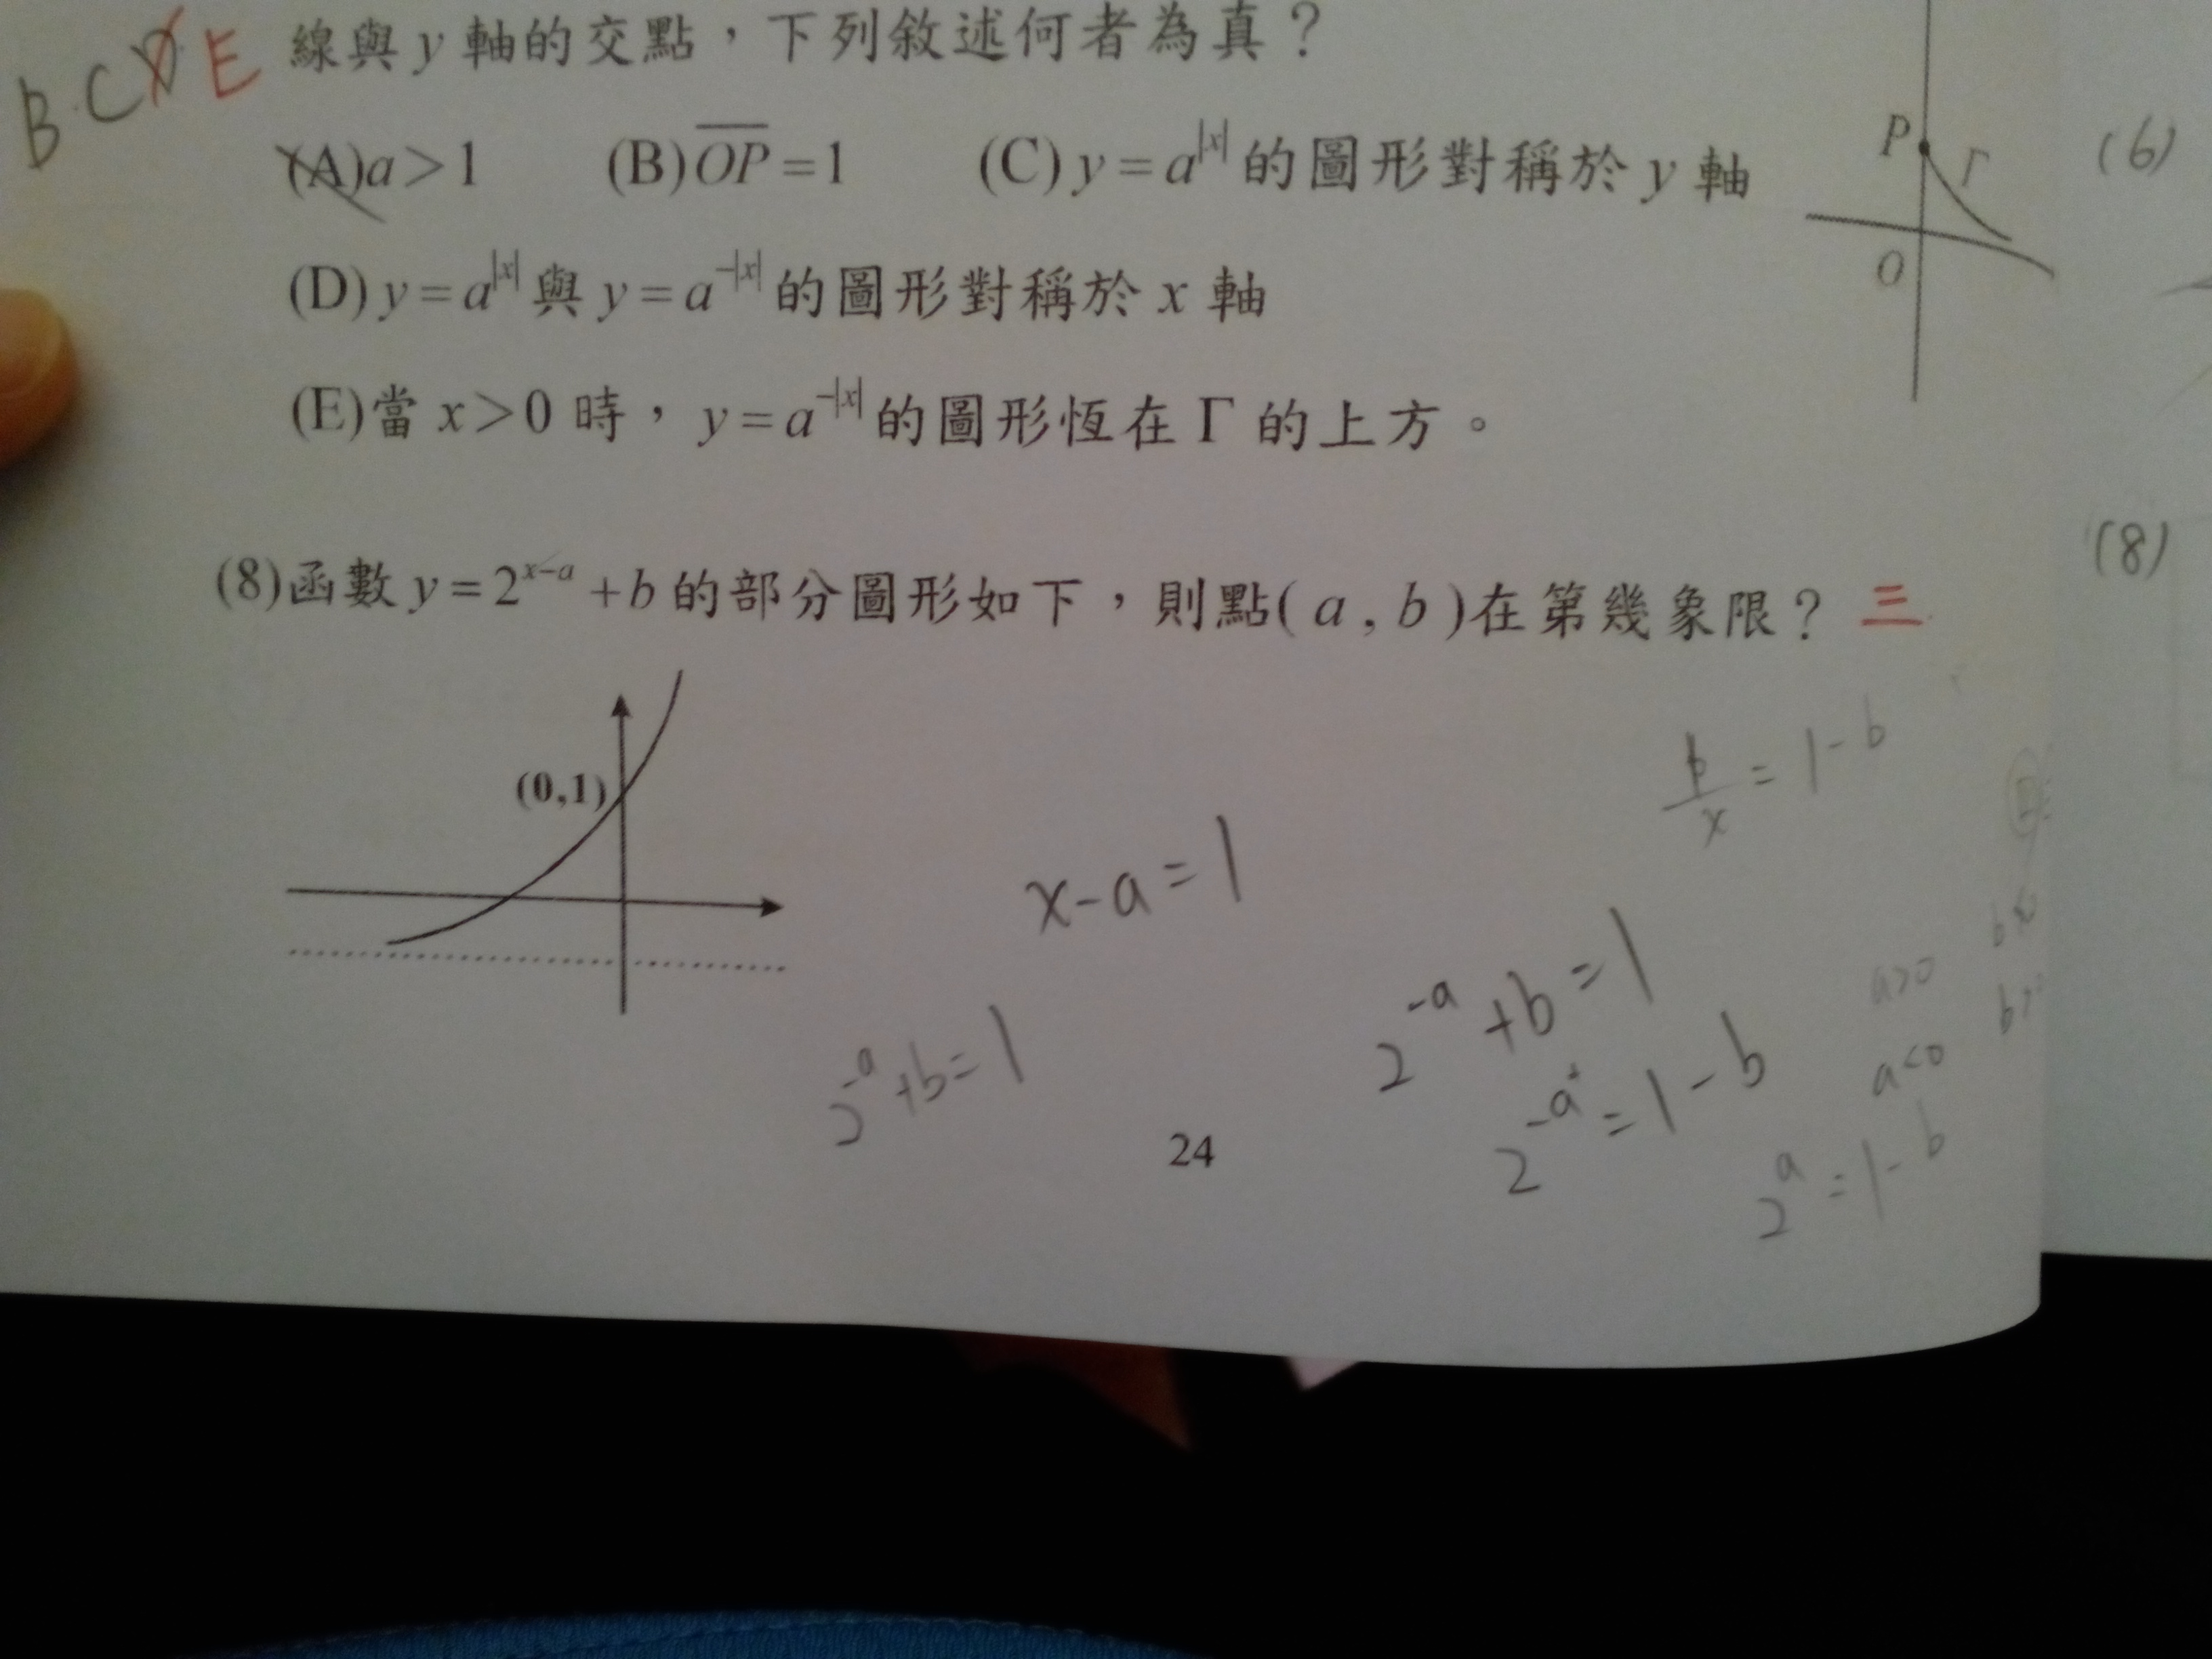 線與 y 軸的交點，下列敘述何者為真？
B C D E
(A) a > 1 (B) OP = 1 (C) y = a^|x| 的圖形對稱於 y 軸
(D) y = a^|x| 與 y = a^-|x| 的圖形對稱於 x 軸
(E)當 x > 0 時，y = a^-|x| 的圖形恆在 Γ 的上方。
P Γ
O
(6)
(8)函數 y = 2^x-a + b 的部分圖形如下，則點( a , b )在第幾象限？ 三
(8)
(0,1)
x-a=1
2^-a +b=1
2^-a +b=1
2^-a =1-b
2^a =1-b
a>0
a<0
24